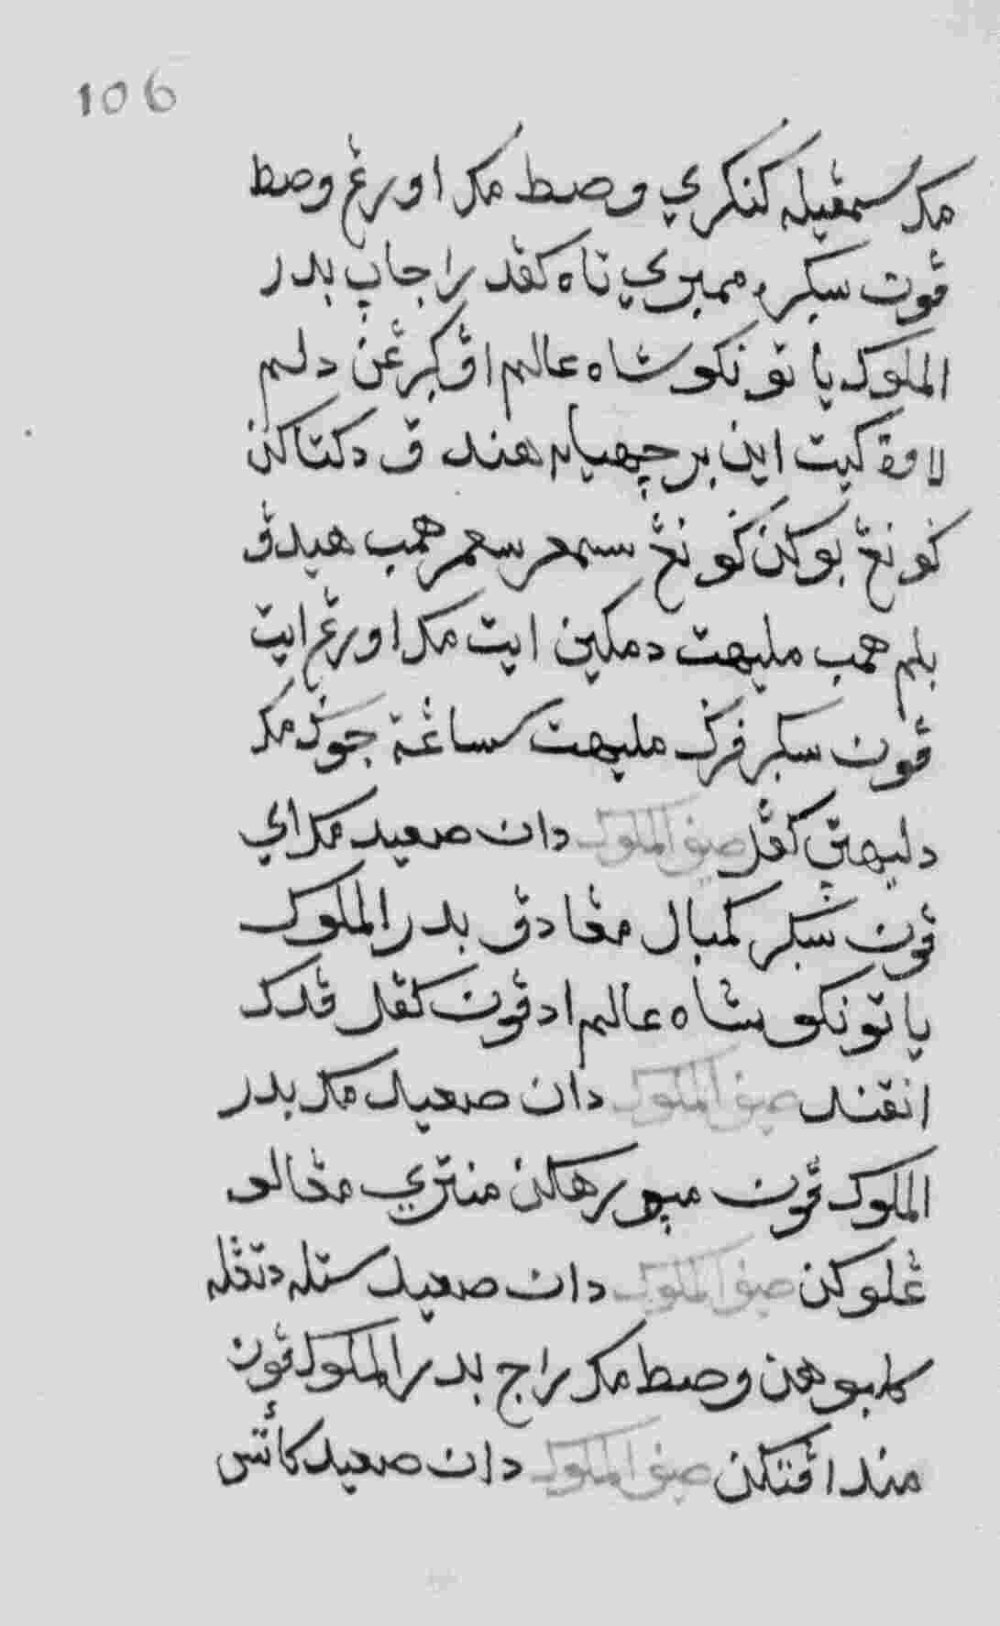 106
مک سمڤيله کنکري وصط مک اورڠ وصط
ڤون سبکر ممبري تاه کڤد راجاڽ بدر
الملوک يا تونکو شاه عالم اڤ کبرڠن دلم
لاوة کيت اين برجهياه هندق دکتاکن
کونڠ بوکن کونڠ سمعر سعمر همب هيدڤ
بلم همب مليهت دمکين ايت مک اورڠ ايت
ڤون سبکر فرک مليهت کساڠة جوک مک
دليهتڽ کڤل صيف الملوک دان صعيد مک اي
ڤون شبکر کمبال مڠادڤ بدر الملوک
يا تونکو شاه عالم اد ڤون کڤل ڤدک
انقند صيف الملوک دان صعيد مک بدر
الملوک ڤون ميورهکن منتري مڠالو
ڠلوکن صيف الملوک دان صعيد ستله دتڤله
کلابوهن وصط مک راج بدر الملوک ڤون
منداڤتکن صيف الملوک دان صعيد کأتس